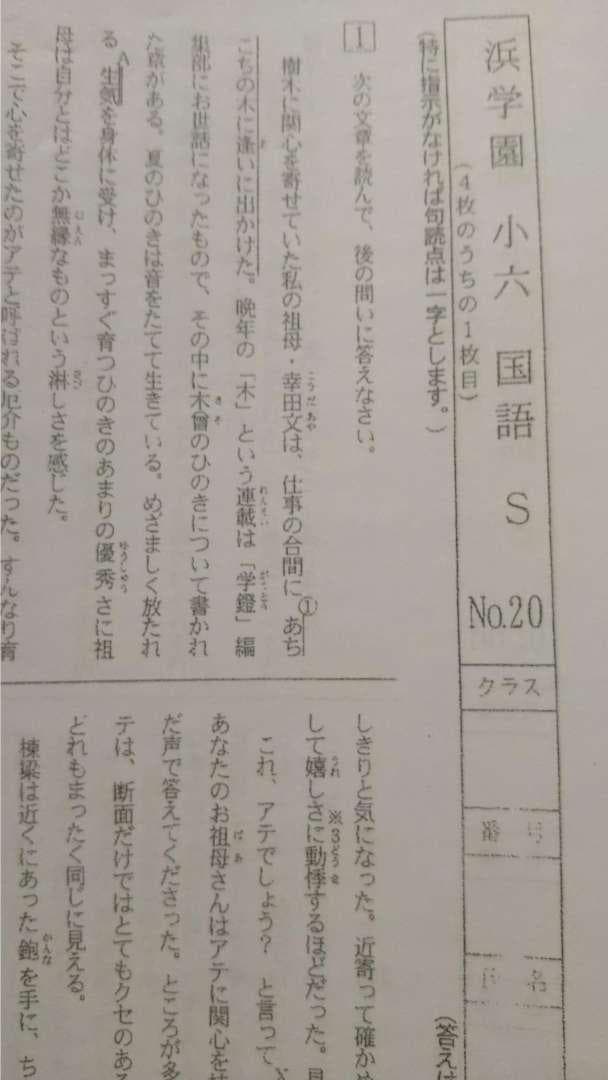 浜学園 小六 国語 S No.20
クラス
番号
氏名
(4枚のうちの1枚目)
(特に指示がなければ句読点は一字とします。)
(答えは
1 次の文章を読んで、後の問いに答えなさい。
樹木に関心を寄せていた私の祖母・幸田文は、仕事の合間に①あち
こちの木に逢いに出かけた。晩年の「木」という連載は「学鐙」編
集部にお世話になったもので、その中に木曾のひのきについて書かれ
た章がある。夏のひのきは音をたてて生きている。めざましく放たれ
る A生気を身体に受け、まっすぐ育つひのきのあまりの優秀さに祖
母は自分とはどこか無縁なものという淋しさを感じた。
そこで心を寄せたのがアテと呼ばれる厄介ものだった。すんなり育
しきりと気になった。近寄って確かめ
して嬉しさに※3動悸するほどだった。
これ、アテでしょう? と言って、
あなたのお祖母さんはアテに関心を
だ声で答えてくださった。ところが多
テは、断面だけではとてもクセのある
どれもまったく同じに見える。
棟梁は近くにあった鉋を手に、ち